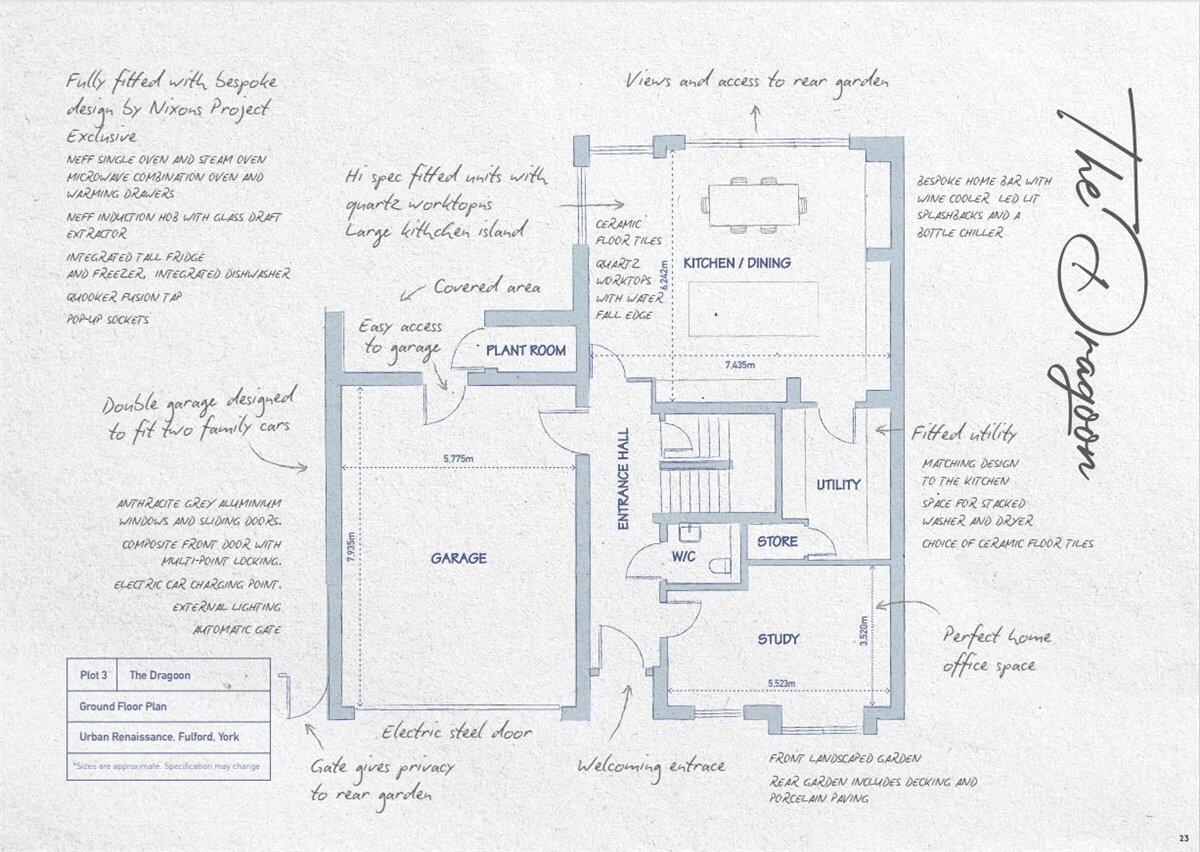 Fully fitted with bespoke
design by Nixons Project
Exclusive
NEFF SINGLE OVEN AND STEAM OVEN
MICROWAVE COMBINATION OVEN AND
WARMING DRAWERS
NEFF INDUCTION HOB WITH GLASS DRAFT
EXTRACTOR
INTEGRATED TALL FRIDGE
AND FREEZER, INTEGRATED DISHWASHER
QUOOKER FUSION TAP
POP-UP SOCKETS
Views and access to rear garden
Hi spec fitted units with
quartz worktopns
Large kithchen island
Covered area
Easy access
to garage
CERAMIC
FLOOR TILES
QUARTZ
WORKTOPS
WITH WATER
FALL EDGE
KITCHEN / DINING
6,242m
7,435m
BESPOKE HOME BAR WITH
WINE COOLER LED LIT
SPLASHBACKS AND A
BOTTLE CHILLER
The Dragoon
PLANT ROOM
Double garage designed
to fit two family cars
5,775m
7,935m
GARAGE
ENTRANCE HALL
Fitted utility
MATCHING DESIGN
TO THE KITCHEN
SPACE FOR STACKED
WASHER AND DRYER
CHOICE OF CERAMIC FLOOR TILES
UTILITY
STORE
W/C
ANTHRACITE GREY ALUMINIUM
WINDOWS AND SLIDING DOORS.
COMPOSITE FRONT DOOR WITH
MULTI-POINT LOCKING.
ELECTRIC CAR CHARGING POINT.
EXTERNAL LIGHTING
AUTOMATIC GATE
STUDY
3,520m
5,523m
Perfect home
office space
Plot 3 The Dragoon
Ground Floor Plan
Urban Renaissance, Fulford, York
*Sizes are approximate. Specification may change
Electric steel door
Gate gives privacy
to rear garden
Welcoming entrace
FRONT LANDSCAPED GARDEN
REAR GARDEN INCLUDES DECKING AND
PORCELAIN PAVING
23